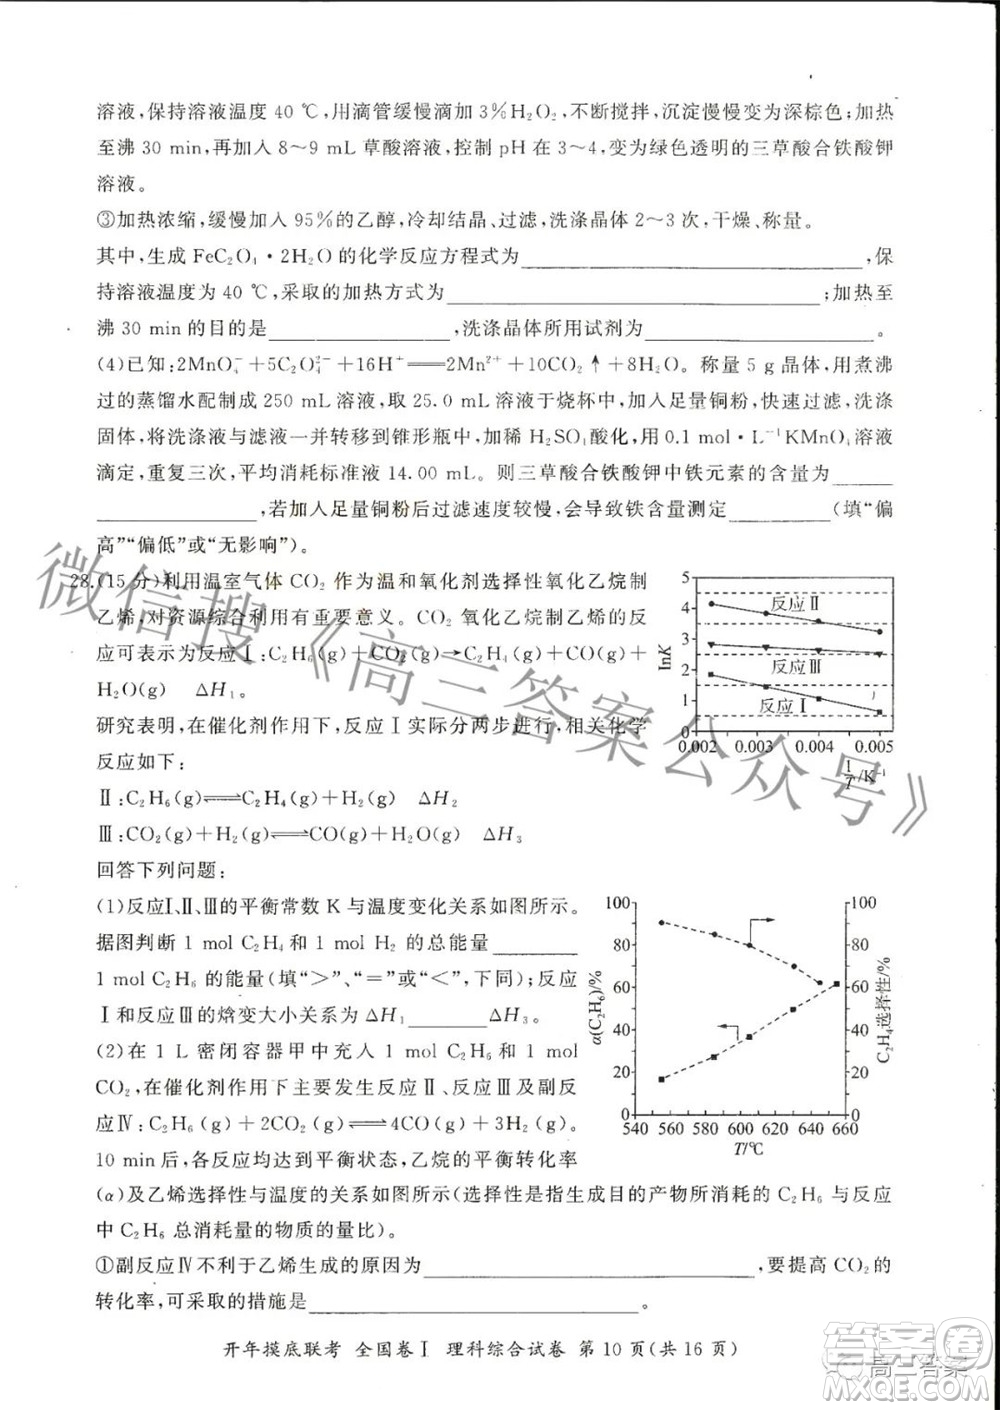 溶液,保持溶液温度 40 ℃,用滴管缓慢滴加 3%H₂O₂,不断搅拌,沉淀慢慢变为深棕色;加热
至沸 30 min,再加入 8～9 mL 草酸溶液,控制 pH 在 3～4,变为绿色透明的三草酸合铁酸钾
溶液。
③加热浓缩,缓慢加入 95%的乙醇,冷却结晶、过滤,洗涤晶体 2～3 次,干燥、称量。
其中,生成 FeC₂O₄·2H₂O 的化学反应方程式为____,保
持溶液温度为 40 ℃,采取的加热方式为____;加热至
沸 30 min 的目的是____,洗涤晶体所用试剂为____。
(4)已知:2MnO₄⁻+5C₂O₄²⁻+16H⁺══2Mn²⁺+10CO₂↑+8H₂O。称量 5 g 晶体,用煮沸
过的蒸馏水配制成 250 mL 溶液,取 25.0 mL 溶液于烧杯中,加入足量铜粉,快速过滤,洗涤
固体,将洗涤液与滤液一并转移到锥形瓶中,加稀 H₂SO₄酸化,用 0.1 mol·L⁻¹KMnO₄溶液
滴定,重复三次,平均消耗标准液 14.00 mL。则三草酸合铁酸钾中铁元素的含量为____
____,若加入足量铜粉后过滤速度较慢,会导致铁含量测定____(填“偏
高”“偏低”或“无影响”)。
28.(15 分)利用温室气体 CO₂ 作为温和氧化剂选择性氧化乙烷制
乙烯,对资源综合利用有重要意义。CO₂ 氧化乙烷制乙烯的反
应可表示为反应Ⅰ:C₂H₆(g)+CO₂(g)→C₂H₄(g)+CO(g)+
H₂O(g) ΔH₁。
研究表明,在催化剂作用下,反应Ⅰ实际分两步进行,相关化学
反应如下:
Ⅱ:C₂H₆(g)⇌C₂H₄(g)+H₂(g) ΔH₂
Ⅲ:CO₂(g)+H₂(g)⇌CO(g)+H₂O(g) ΔH₃
回答下列问题:
lnK
5
4
3
2
1
0
反应Ⅱ
反应Ⅲ
反应Ⅰ
0.002 0.003 0.004 0.005
1/T /K⁻¹
(1)反应Ⅰ、Ⅱ、Ⅲ的平衡常数 K 与温度变化关系如图所示。
据图判断 1 mol C₂H₄和 1 mol H₂ 的总能量____
1 mol C₂H₆ 的能量(填“>”、“=”或“<”,下同);反应
Ⅰ和反应Ⅲ的焓变大小关系为 ΔH₁____ΔH₃。
(2)在 1 L 密闭容器甲中充入 1 mol C₂H₆和 1 mol
CO₂,在催化剂作用下主要发生反应Ⅱ、反应Ⅲ及副反
应Ⅳ:C₂H₆(g)+2CO₂(g)⇌4CO(g)+3H₂(g)。
10 min 后,各反应均达到平衡状态,乙烷的平衡转化率
(α)及乙烯选择性与温度的关系如图所示(选择性是指生成目的产物所消耗的 C₂H₆ 与反应
中 C₂H₆ 总消耗量的物质的量比)。
α(C₂H₆)/%
100
80
60
40
20
0
C₂H₄选择性/%
100
80
60
40
20
0
540 560 580 600 620 640 660
T/℃
①副反应Ⅳ不利于乙烯生成的原因为____,要提高 CO₂的
转化率,可采取的措施是____。
开年摸底联考 全国卷Ⅰ 理科综合试卷 第 10 页(共 16 页)
微信搜《高三答案公众号》
高三答案
答案圈
MXQE.COM